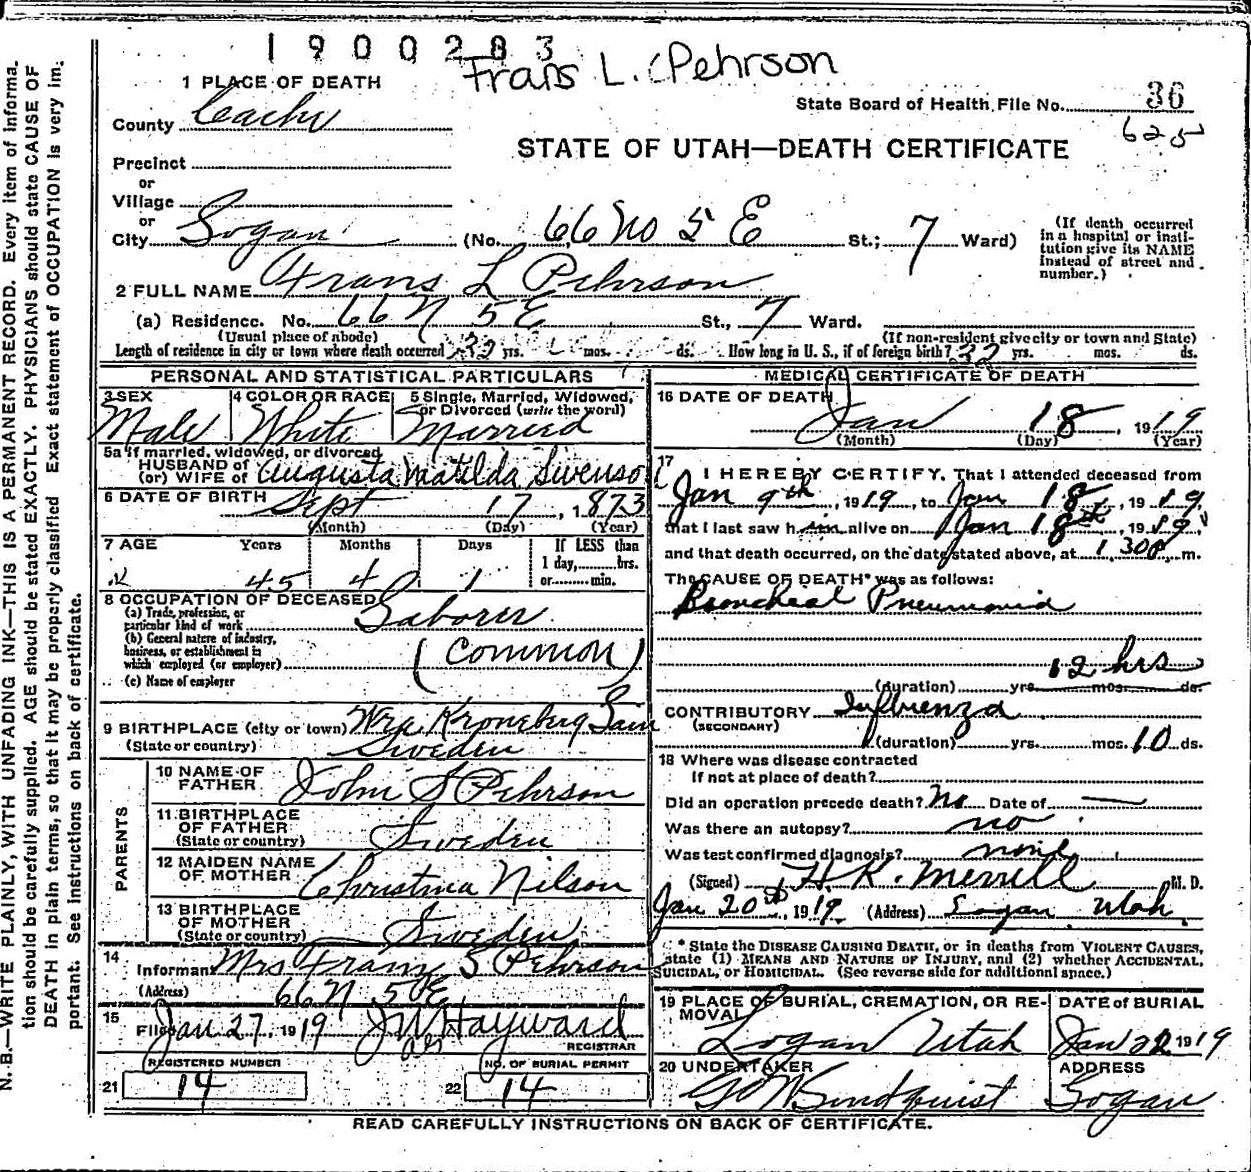 1900283
Frans L. Pehrson
1 PLACE OF DEATH
State Board of Health File No. 36
625
County Cache
STATE OF UTAH—DEATH CERTIFICATE
Precinct
or
Village
or
City Logan (No. 66 No 5 E St.; 7 Ward)
(If death occurred in a hospital or insti-
tution give its NAME instead of street and number.)
2 FULL NAME Frans L Pehrson
(a) Residence. No. 66 N 5 E St., 7 Ward.
(Usual place of abode) (If non-resident give city or town and State)
Length of residence in city or town where death occurred 32 yrs. mos. ds. How long in U. S., if of foreign birth? 32 yrs. mos. ds.
PERSONAL AND STATISTICAL PARTICULARS
3 SEX 4 COLOR OR RACE 5 Single, Married, Widowed, or Divorced (write the word)
Male White Married
5a If married, widowed, or divorced
HUSBAND of
(or) WIFE of Augusta Matilda Swenson
6 DATE OF BIRTH Sept 17, 1873
(Month) (Day) (Year)
7 AGE Years Months Days If LESS than
1 day, hrs.
or min.
45 4 1
8 OCCUPATION OF DECEASED
(a) Trade, profession, or
particular kind of work Laborer
(b) General nature of industry,
business, or establishment in
which employed (or employer) (Common)
(c) Name of employer
9 BIRTHPLACE (city or town) Kroneberg
(State or country) Sweden
PARENTS
10 NAME OF FATHER John S Pehrson
11 BIRTHPLACE OF FATHER
(State or country) Sweden
12 MAIDEN NAME OF MOTHER Christina Nilson
13 BIRTHPLACE OF MOTHER
(State or country) Sweden
14 Informant Mrs Frans S Pehrson
(Address) 66 N 5 E
15 Filed Jan 27, 1919 J W Hayward
REGISTRAR
REGISTERED NUMBER NO. OF BURIAL PERMIT
21 14 22 14
MEDICAL CERTIFICATE OF DEATH
16 DATE OF DEATH Jan 18, 1919
(Month) (Day) (Year)
17 I HEREBY CERTIFY, That I attended deceased from
Jan 9th, 1919, to Jan 18, 1919,
that I last saw him alive on Jan 18th, 1919,
and that death occurred, on the date stated above, at 1 30 p m.
The CAUSE OF DEATH* was as follows:
Bronchial Pneumonia
12 hrs
(duration) yrs. mos. ds.
CONTRIBUTORY Influenza
(SECONDARY)
(duration) yrs. mos. 10 ds.
18 Where was disease contracted
If not at place of death?
Did an operation precede death? No Date of —
Was there an autopsy? no
Was test confirmed diagnosis? none
(Signed) H. K. Merrill M. D.
Jan 20th, 1919 (Address) Logan Utah
* State the DISEASE CAUSING DEATH, or in deaths from VIOLENT CAUSES,
state (1) MEANS AND NATURE OF INJURY, and (2) whether ACCIDENTAL,
SUICIDAL, or HOMICIDAL. (See reverse side for additional space.)
19 PLACE OF BURIAL, CREMATION, OR RE-
MOVAL DATE of BURIAL
Logan Utah Jan 22 1919
20 UNDERTAKER ADDRESS
Lindquist Logan
READ CAREFULLY INSTRUCTIONS ON BACK OF CERTIFICATE.
N. B.—WRITE PLAINLY, WITH UNFADING INK—THIS IS A PERMANENT RECORD. Every item of informa-
tion should be carefully supplied. AGE should be stated EXACTLY. PHYSICIANS should state CAUSE OF
DEATH in plain terms, so that it may be properly classified. Exact statement of OCCUPATION is very im-
portant. See instructions on back of certificate.